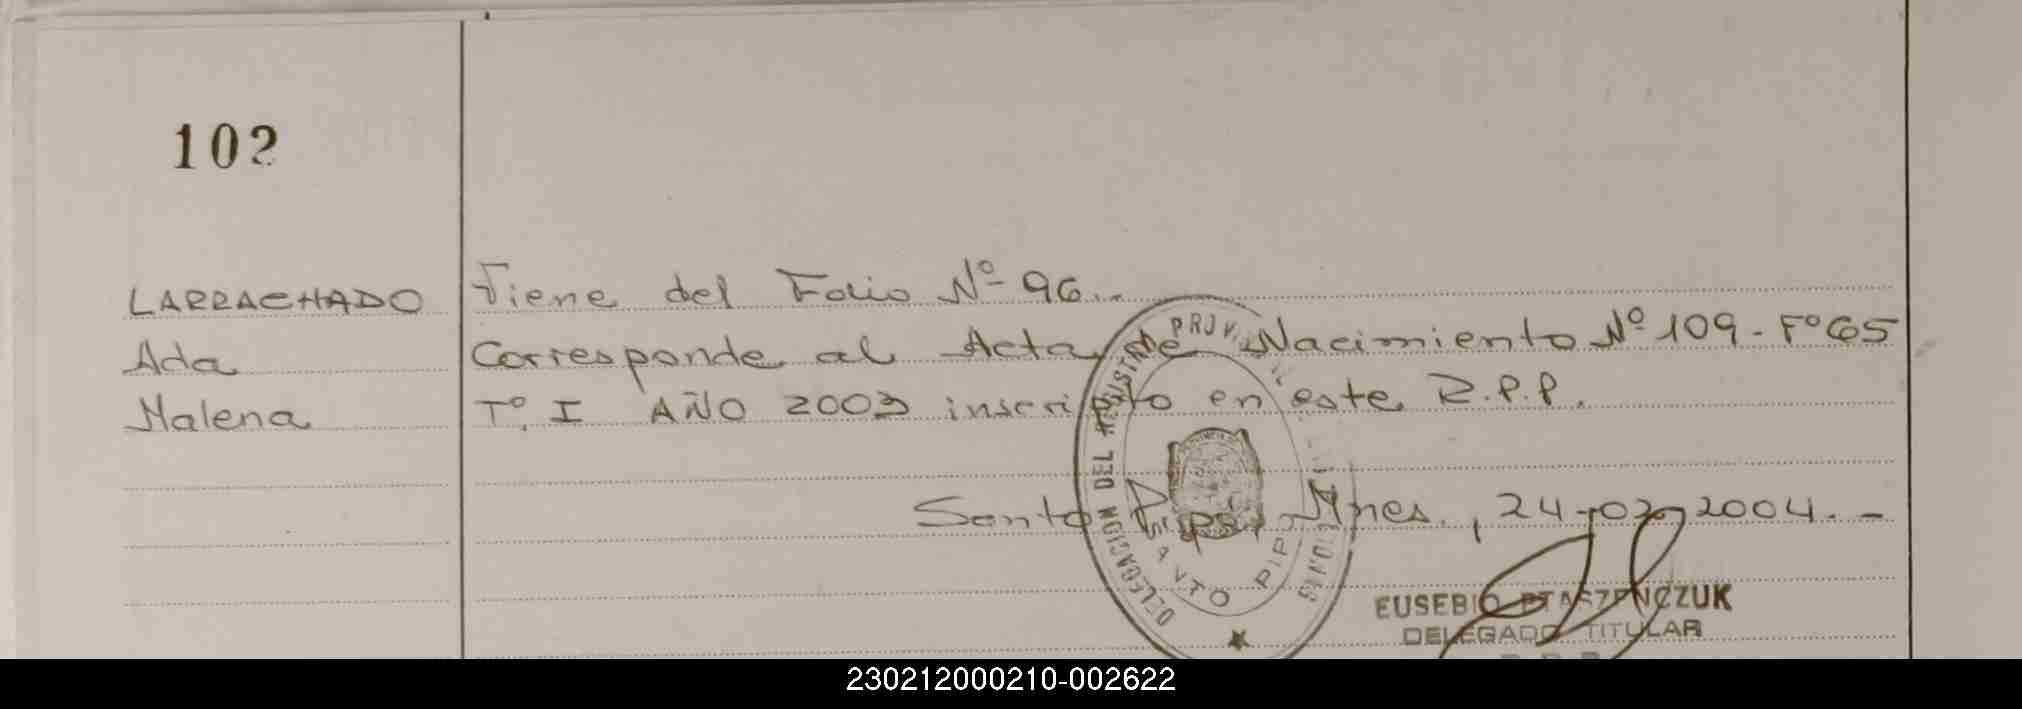 102
LARRACHADO
Ada
Malena
Viene del Folio Nº 96..
Corresponde al Acta de Nacimiento Nº 109 - Fº 65
Tº. I AÑO 2003 inscripto en este R.P.P.
Santo Pipó, Mnes., 24-02-2004.-
DELEGACION DEL REGISTRO PROV
MISIONES
SANTO PIPO
EUSEBIO PTASZENCZUK
DELEGADO TITULAR
230212000210-002622